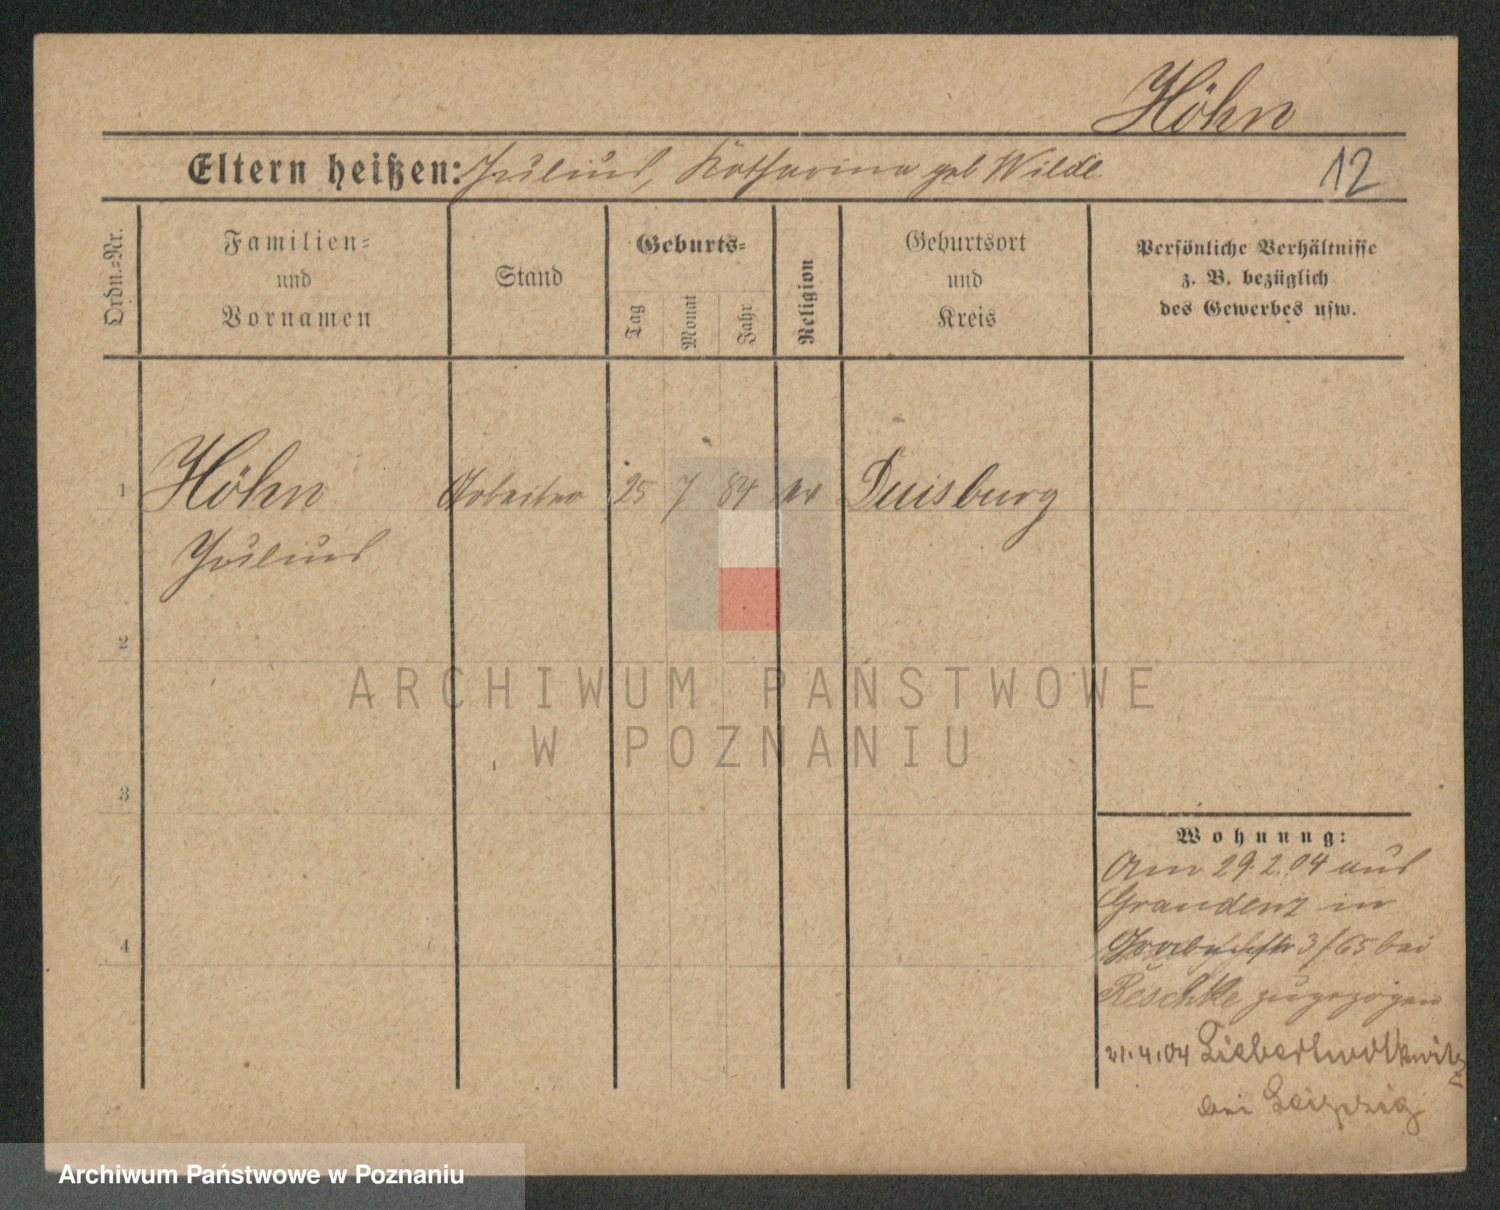 Höhn
Eltern heißen: Julius, Katharina geb Wilde
12
Ordn.-Nr.
Familien-
und
Vornamen
Stand
Geburts-
Tag
Monat
Jahr
Religion
Geburtsort
und
Kreis
Persönliche Verhältnisse
z. B. bezüglich
des Gewerbes usw.
1 Höhn Arbeiter 25 7 84 ev Duisburg
Julius
2
3
4
ARCHIWUM PAŃSTWOWE
W POZNANIU
Wohnung:
Am 29.2.04 aus
Graudenz in
3/65 bei
Reschke zugezogen
21.4.04 Liebertwolkwitz
bei Leipzig
Archiwum Państwowe w Poznaniu